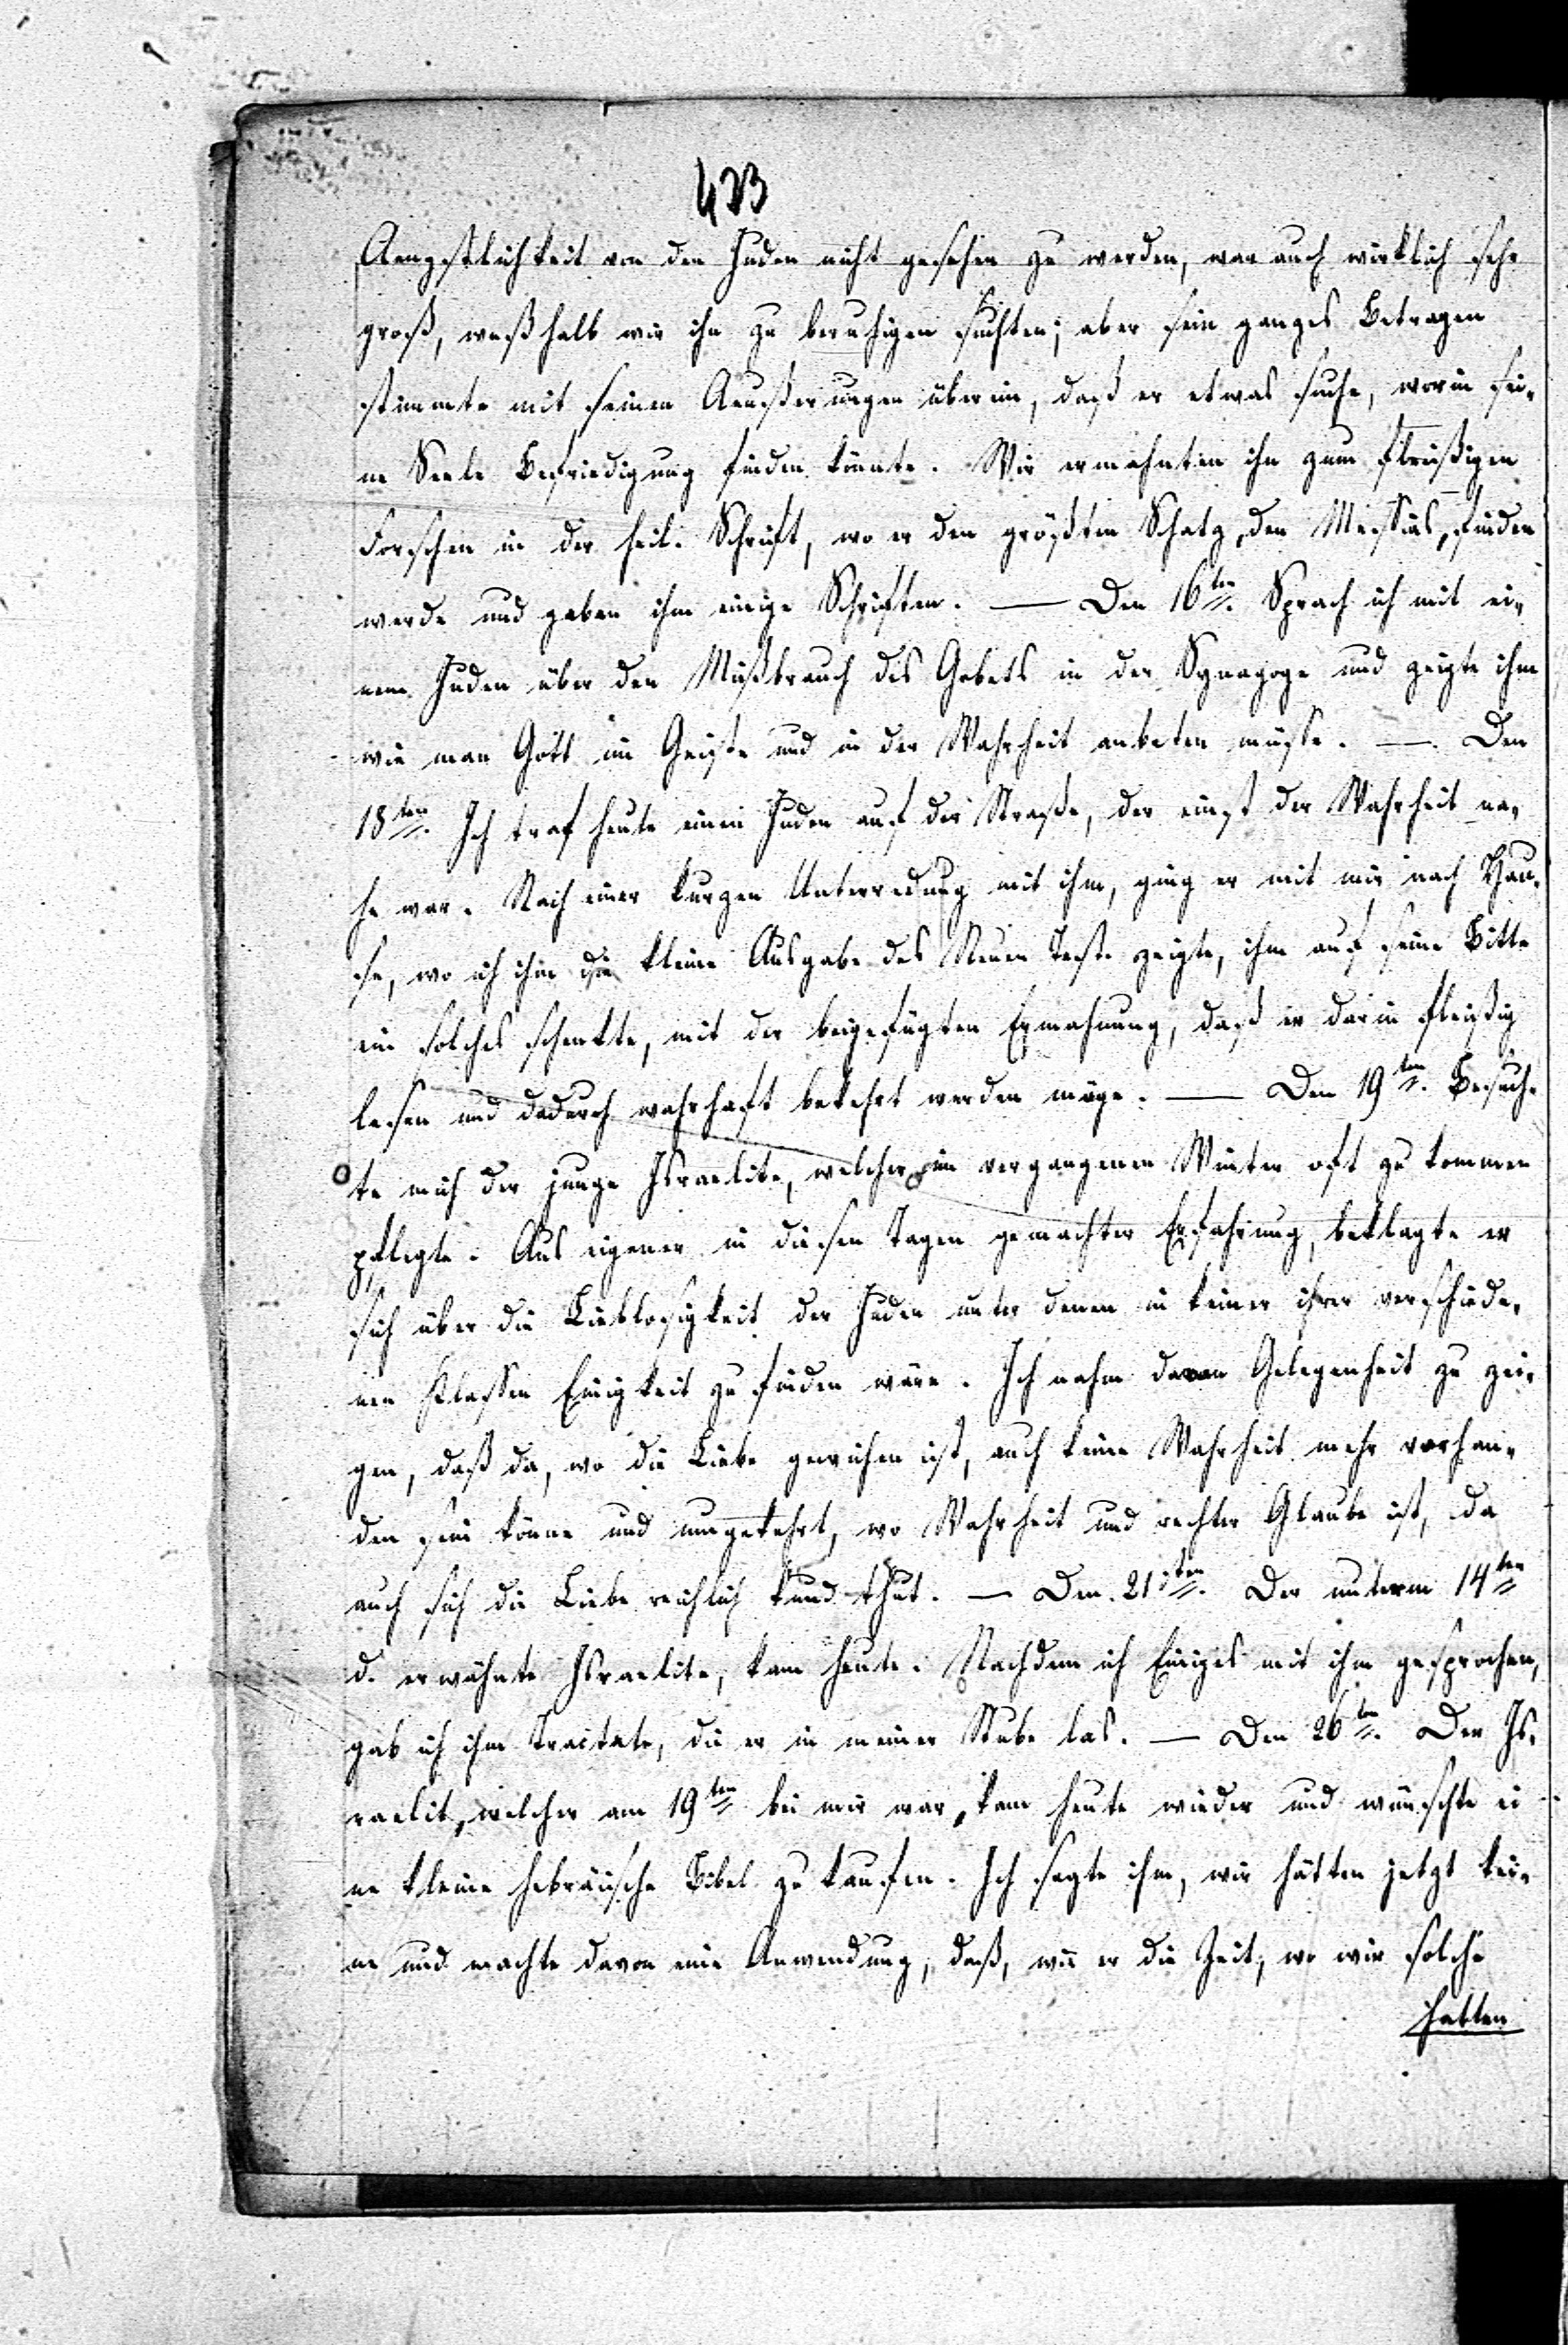 433
Aengstlichkeit von den Juden nicht gesehen zu werden, war auch wirklich sehr
groß, weßhalb wir ihn zu beruhigen suchten; aber sein ganzes Betragen
stimmte mit seinen Aeußerungen überein, daß er etwas suche, worin sei-
ne Seele Befriedigung finden könnte. Wir ermahnten ihn zum fleißigen
Forschen in der heil. Schrift, wo er den größten Schatz, den Messias, finden
werde und gaben ihm einige Schriften. — Den 16ten. Sprach ich mit ei-
nem Juden über den Mißbrauch des Gebets in der Synagoge und zeigte ihm
wie man Gott im Geiste und in der Wahrheit anbeten müsse. — Den
18ten. Ich traf heute einen Juden auf der Straße, der einst der Wahrheit na-
he war. Nach einer kurzen Unterredung mit ihm, ging er mit mir nach Hau-
se, wo ich ihm die kleine Ausgabe des Neuen Test. zeigte, ihm auf seine Bitte
ein solches schenkte, mit der beigefügten Ermahnung, daß er darin fleißig
lesen und dadurch wahrhaft bekehrt werden möge. — Den 19ten. Besuch-
te mich der junge Israelite, welcher im vergangenen Winter oft zu kommen
pflegte. Aus eigener in diesen Tagen gemachter Erfahrung, beklagte er
sich über die Lieblosigkeit der Juden unter denen in keiner ihrer verschiede-
nen Klassen Einigkeit zu finden wäre. Ich nahm davon Gelegenheit zu zei-
gen, daß da, wo die Liebe gewichen ist, auch keine Wahrheit mehr vorhan-
den sein könne und umgekehrt, wo Wahrheit und rechter Glaube ist, da
auch sich die Liebe reichlich kund thut. — Den 21sten. Der unterm 14ten
d. erwähnte Israelite, kam heute. Nachdem ich Einiges mit ihm gesprochen,
gab ich ihm Tractate, die er in meiner Stube las. — Den 26ten. Der Is-
raelit, welcher am 19ten bei mir war, kam heute wieder und wünschte ei
ne kleine hebräische Bibel zu kaufen. Ich sagte ihm, wir hätten jetzt kei-
ne und machte davon eine Anwendung, daß, wie er die Zeit, wo wir solche
hatten